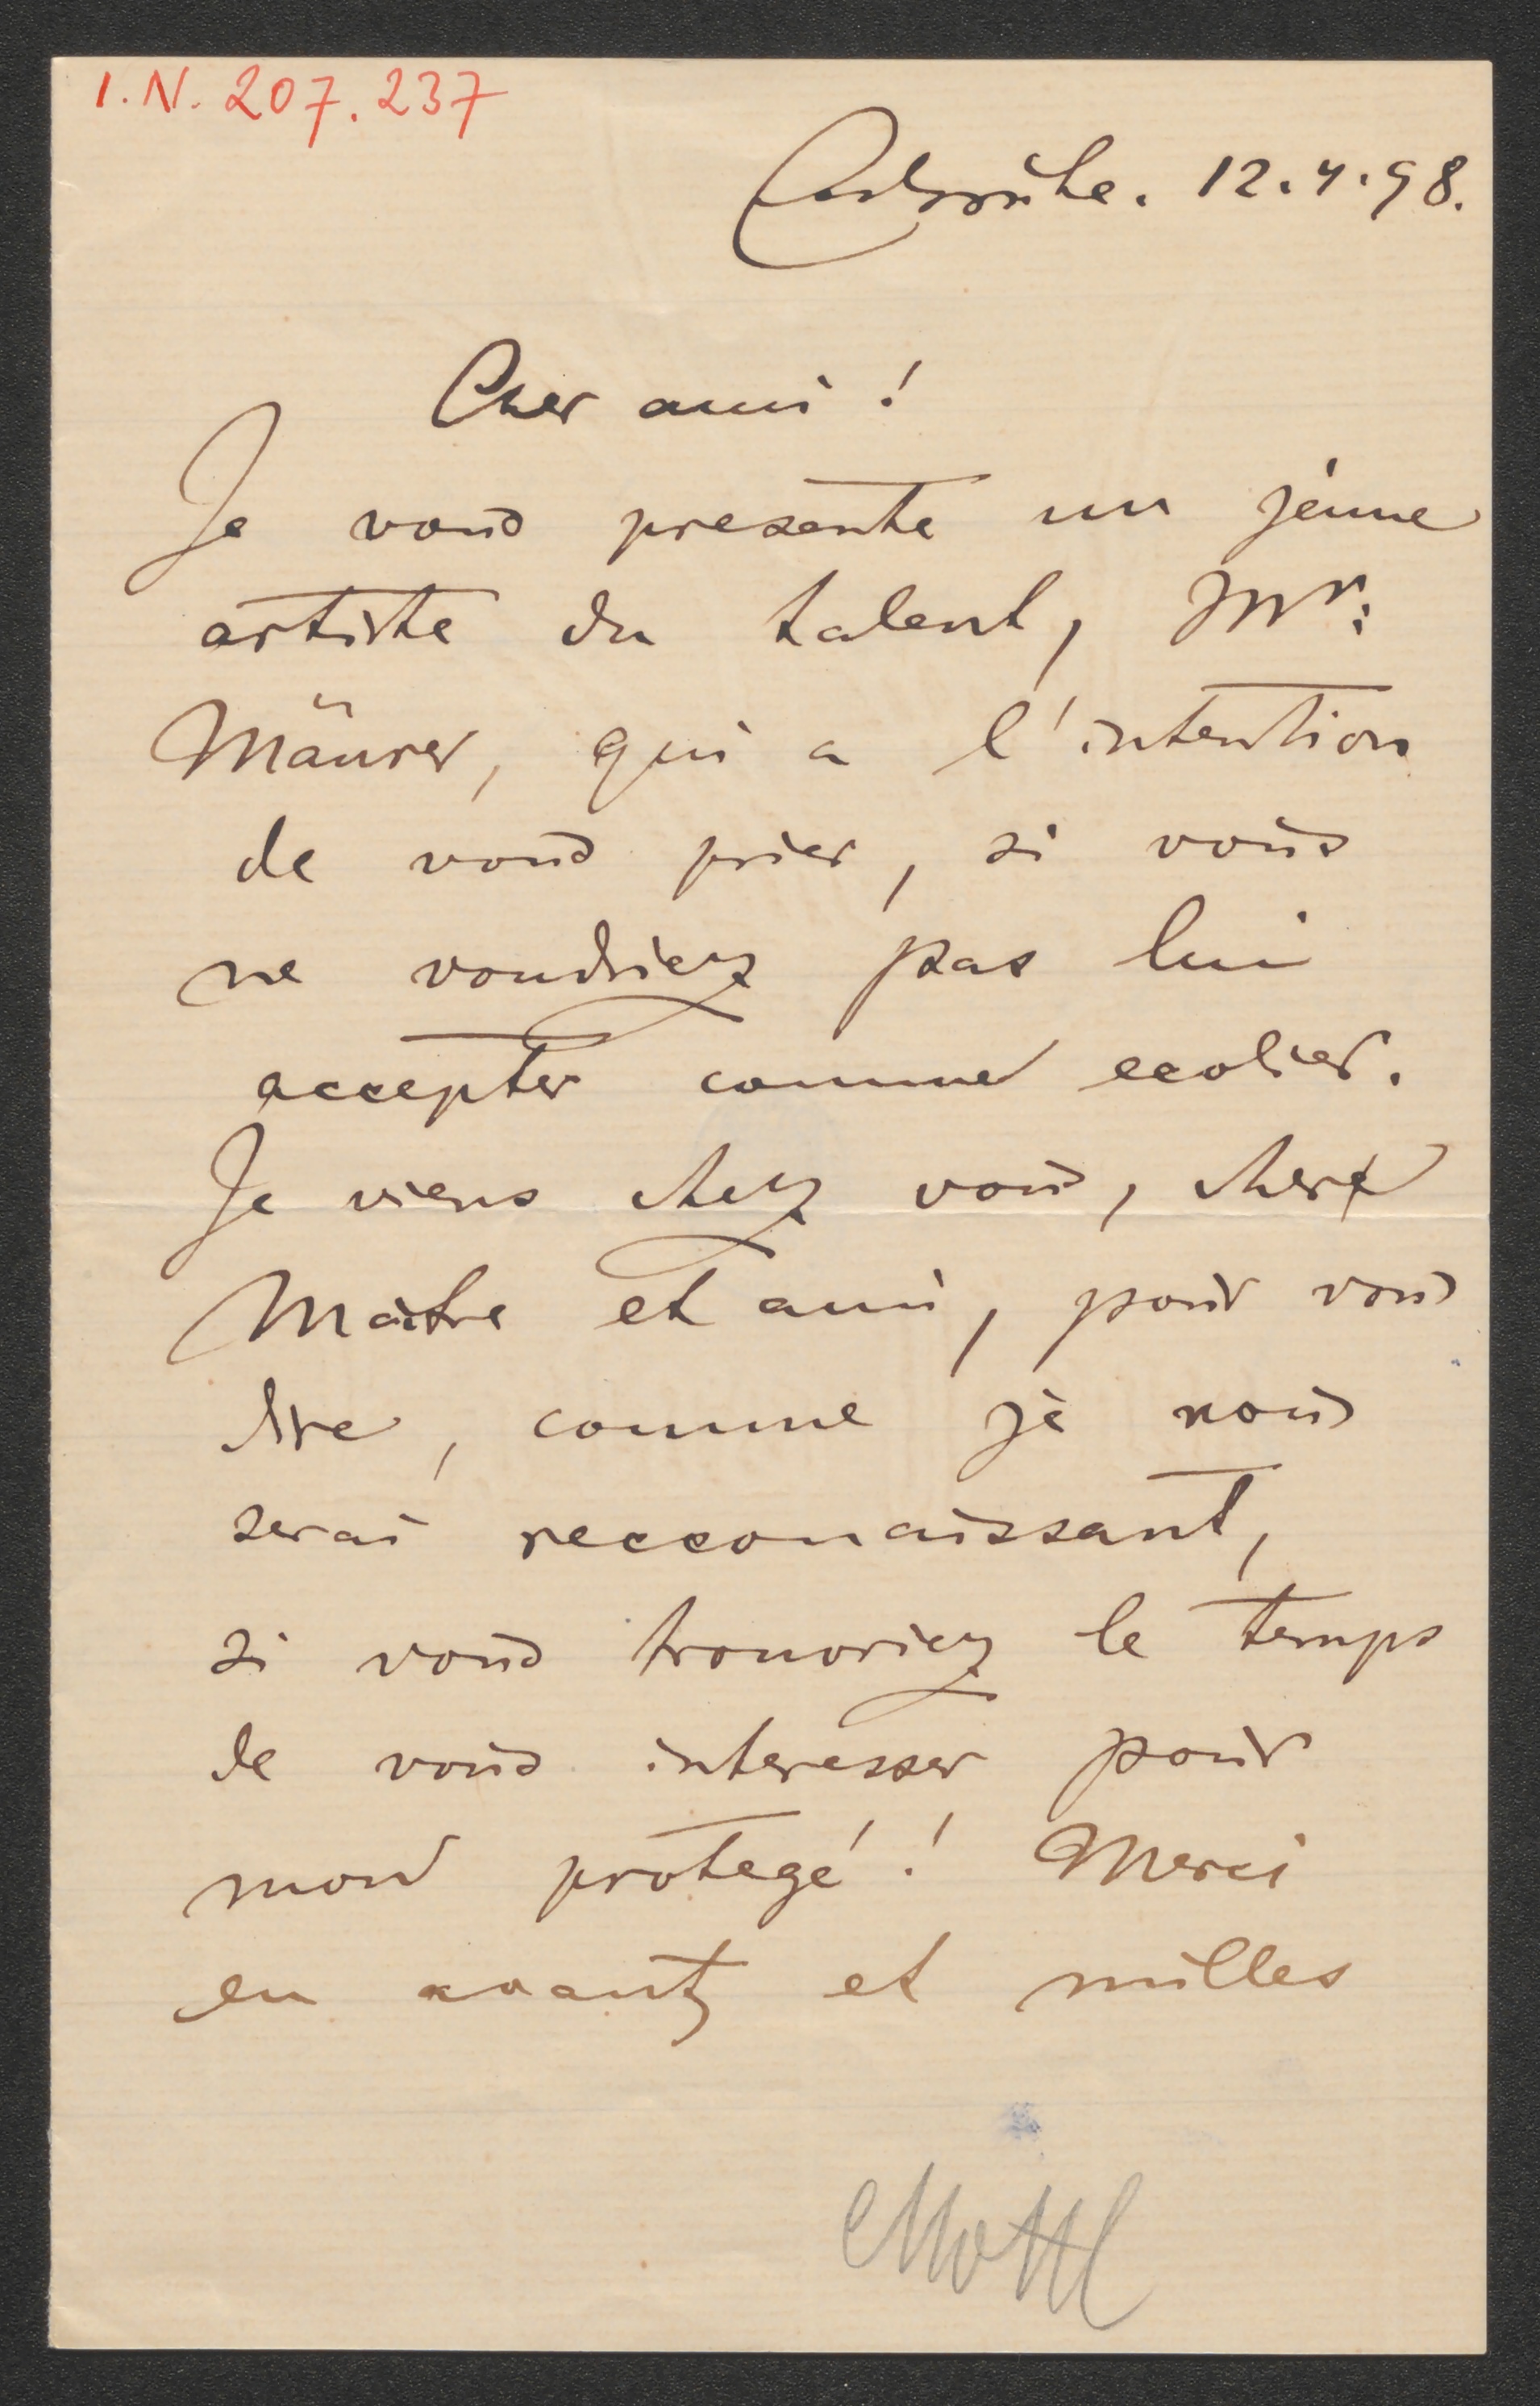 I.N. 207.237
Carlsruhe. 12.4.98.
Cher ami!
Je vous presente un jeune
artiste du talent, Mr:
Mäurer, qui a l'intention
de vous prier, si vous
ne voudriez pas lui
accepter comme ecolier.
Je viens chez vous, cher
Maitre et ami, pour vous
dire, comme je vous
serai recconaissant,
si vous trouvriez le temps
de vous interesser pour
mon protegé! Merci
en avant et milles
Mottl